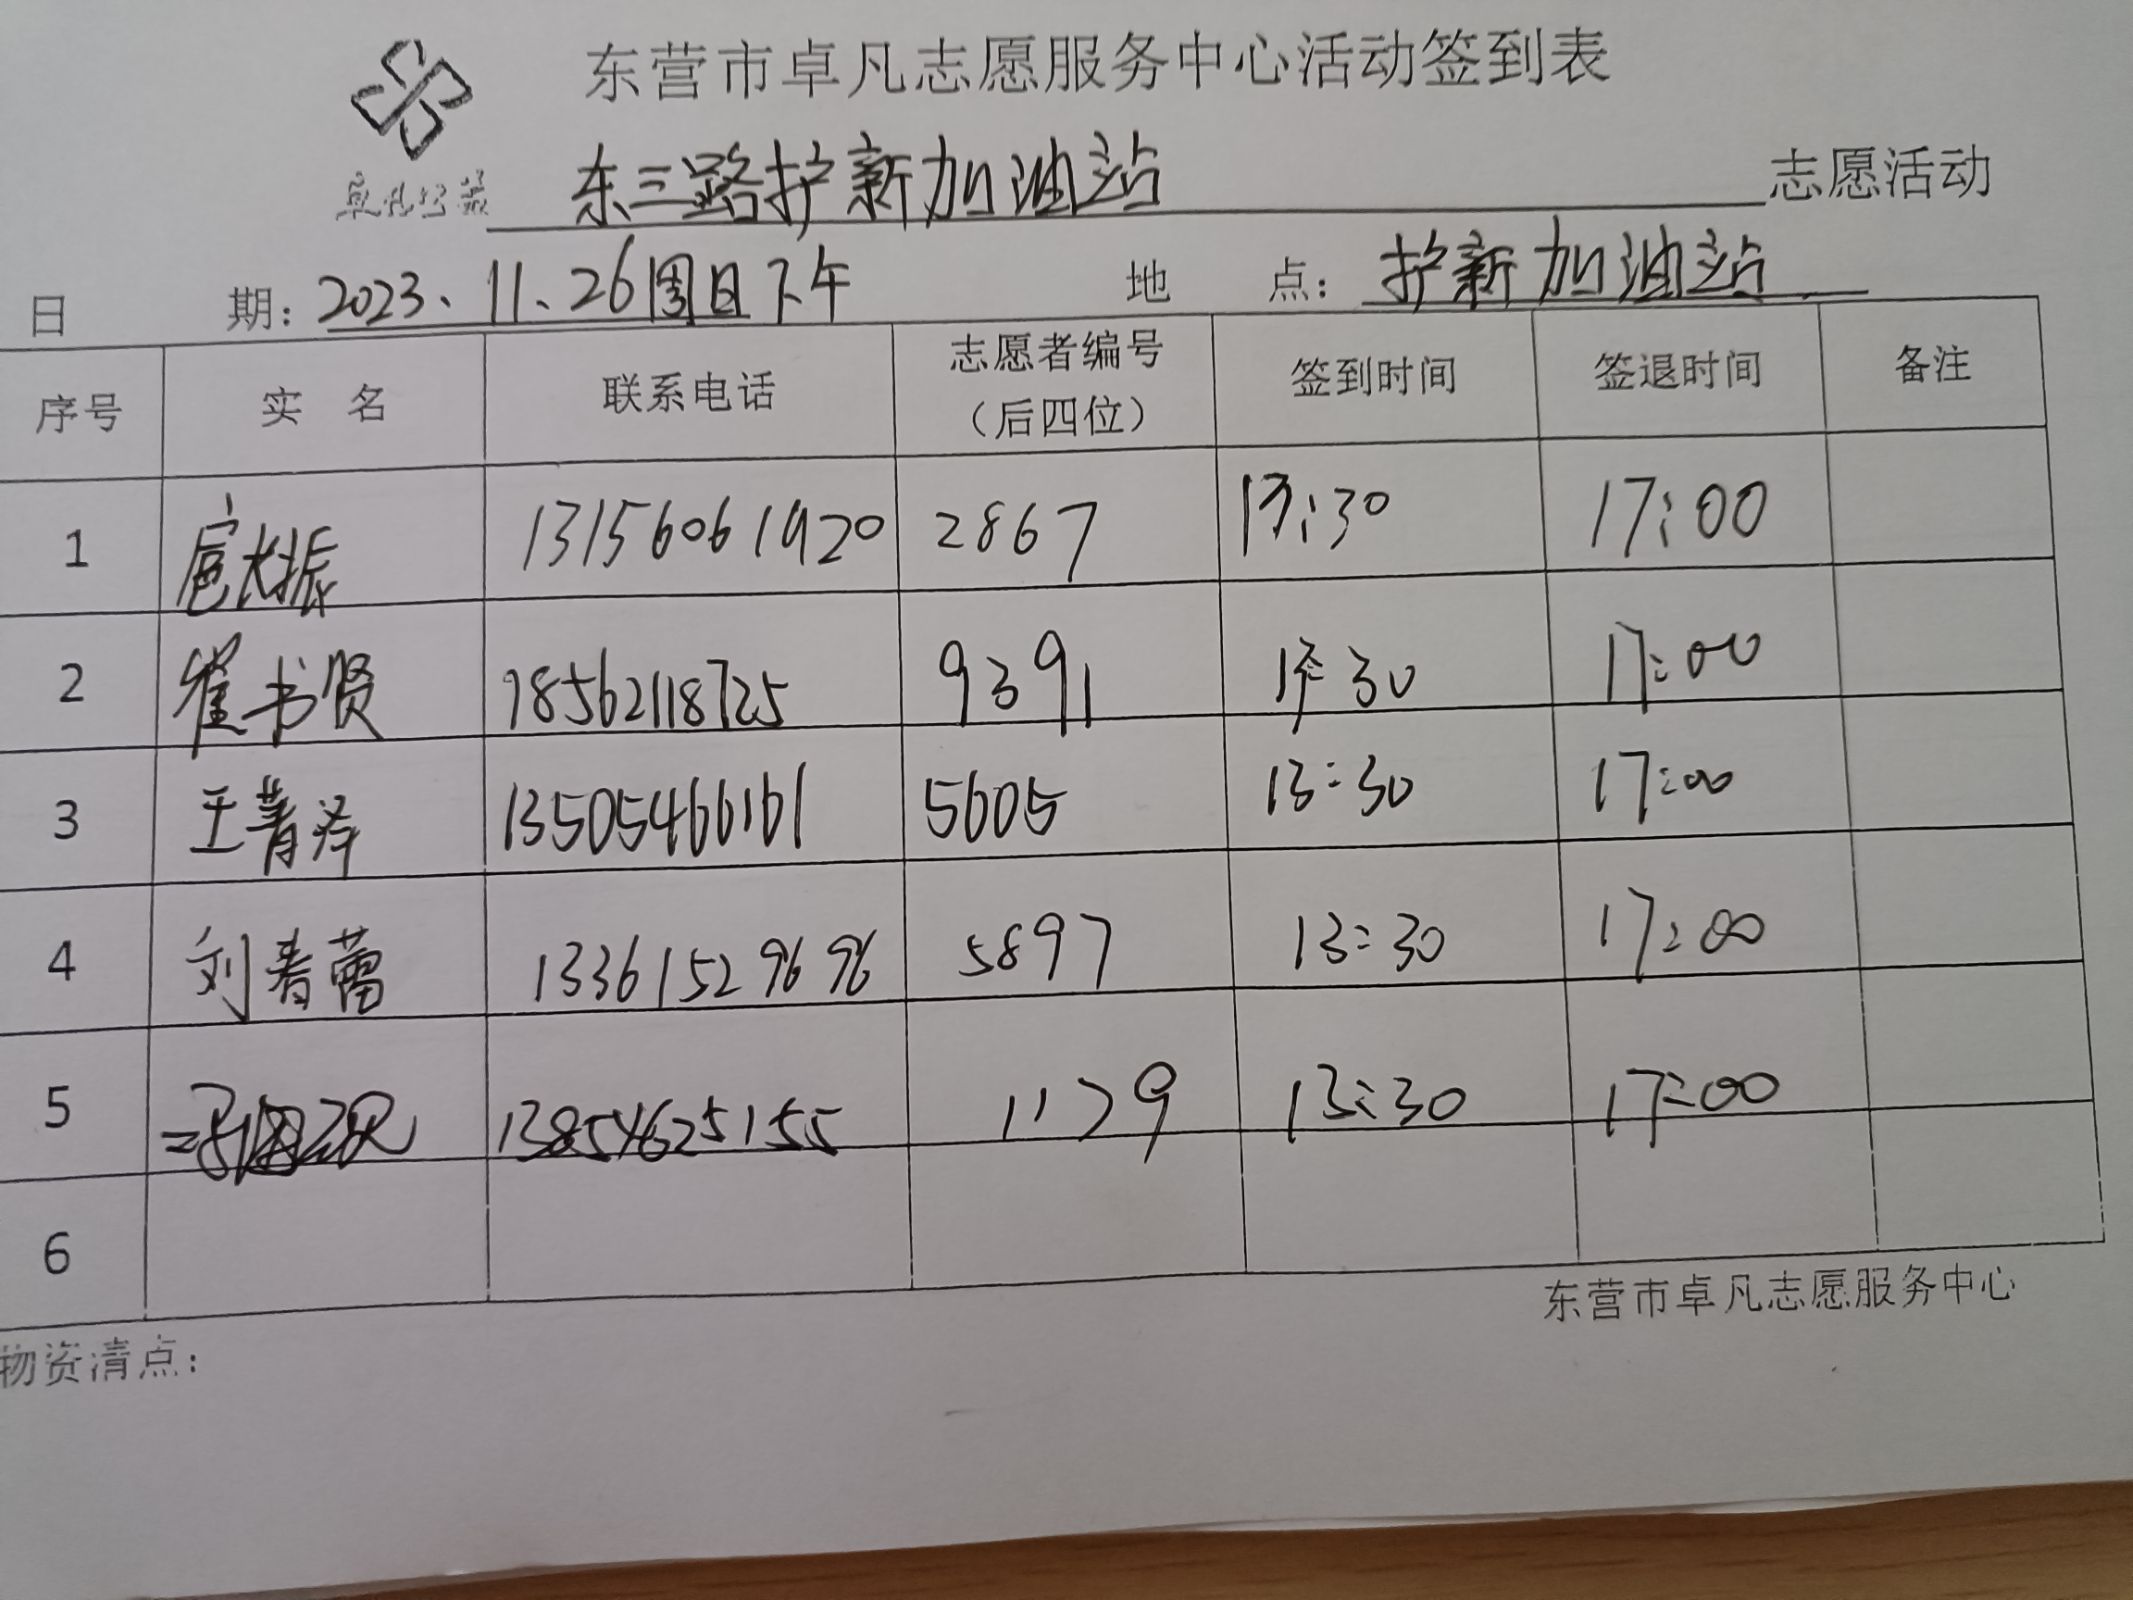 东营市卓凡志愿服务中心活动签到表
东三路护新加油站 志愿活动
日 期: 2023、11、26周日下午 地 点: 护新加油站
序号 实 名 联系电话 志愿者编号（后四位） 签到时间 签退时间 备注
1 扈大振 13156061920 2867 13:30 17:00
2 崔书贤 18562118725 9391 13:30 17:00
3 王菁泽 13505466161 5605 13:30 17:00
4 刘春蕾 13361529696 5897 13:30 17:00
5 13854625155 1179 13:30 17:00
6
东营市卓凡志愿服务中心
物资清点: